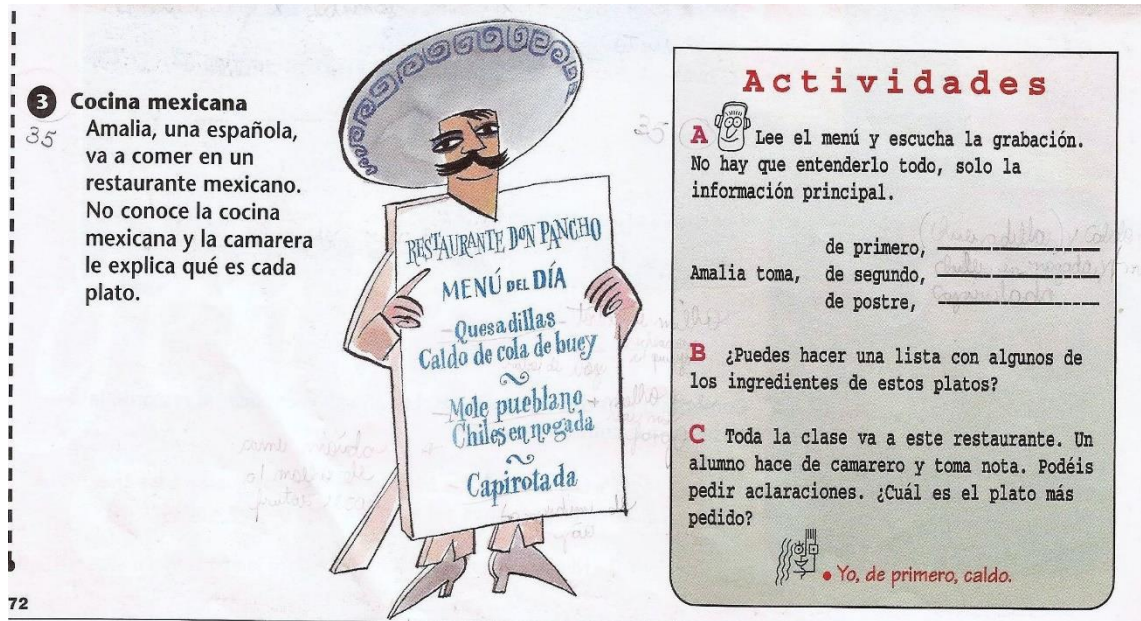 3 Cocina mexicana
35
Amalia, una española,
va a comer en un
restaurante mexicano.
No conoce la cocina
mexicana y la camarera
le explica qué es cada
plato.
RESTAURANTE DON PANCHO
MENÚ DEL DÍA
Quesadillas
Caldo de cola de buey
Mole pueblano
Chiles en nogada
Capirotada
Actividades
A Lee el menú y escucha la grabación.
No hay que entenderlo todo, solo la
información principal.
de primero,
Amalia toma, de segundo,
de postre,
B ¿Puedes hacer una lista con algunos de
los ingredientes de estos platos?
C Toda la clase va a este restaurante. Un
alumno hace de camarero y toma nota. Podéis
pedir aclaraciones. ¿Cuál es el plato más
pedido?
• Yo, de primero, caldo.
72